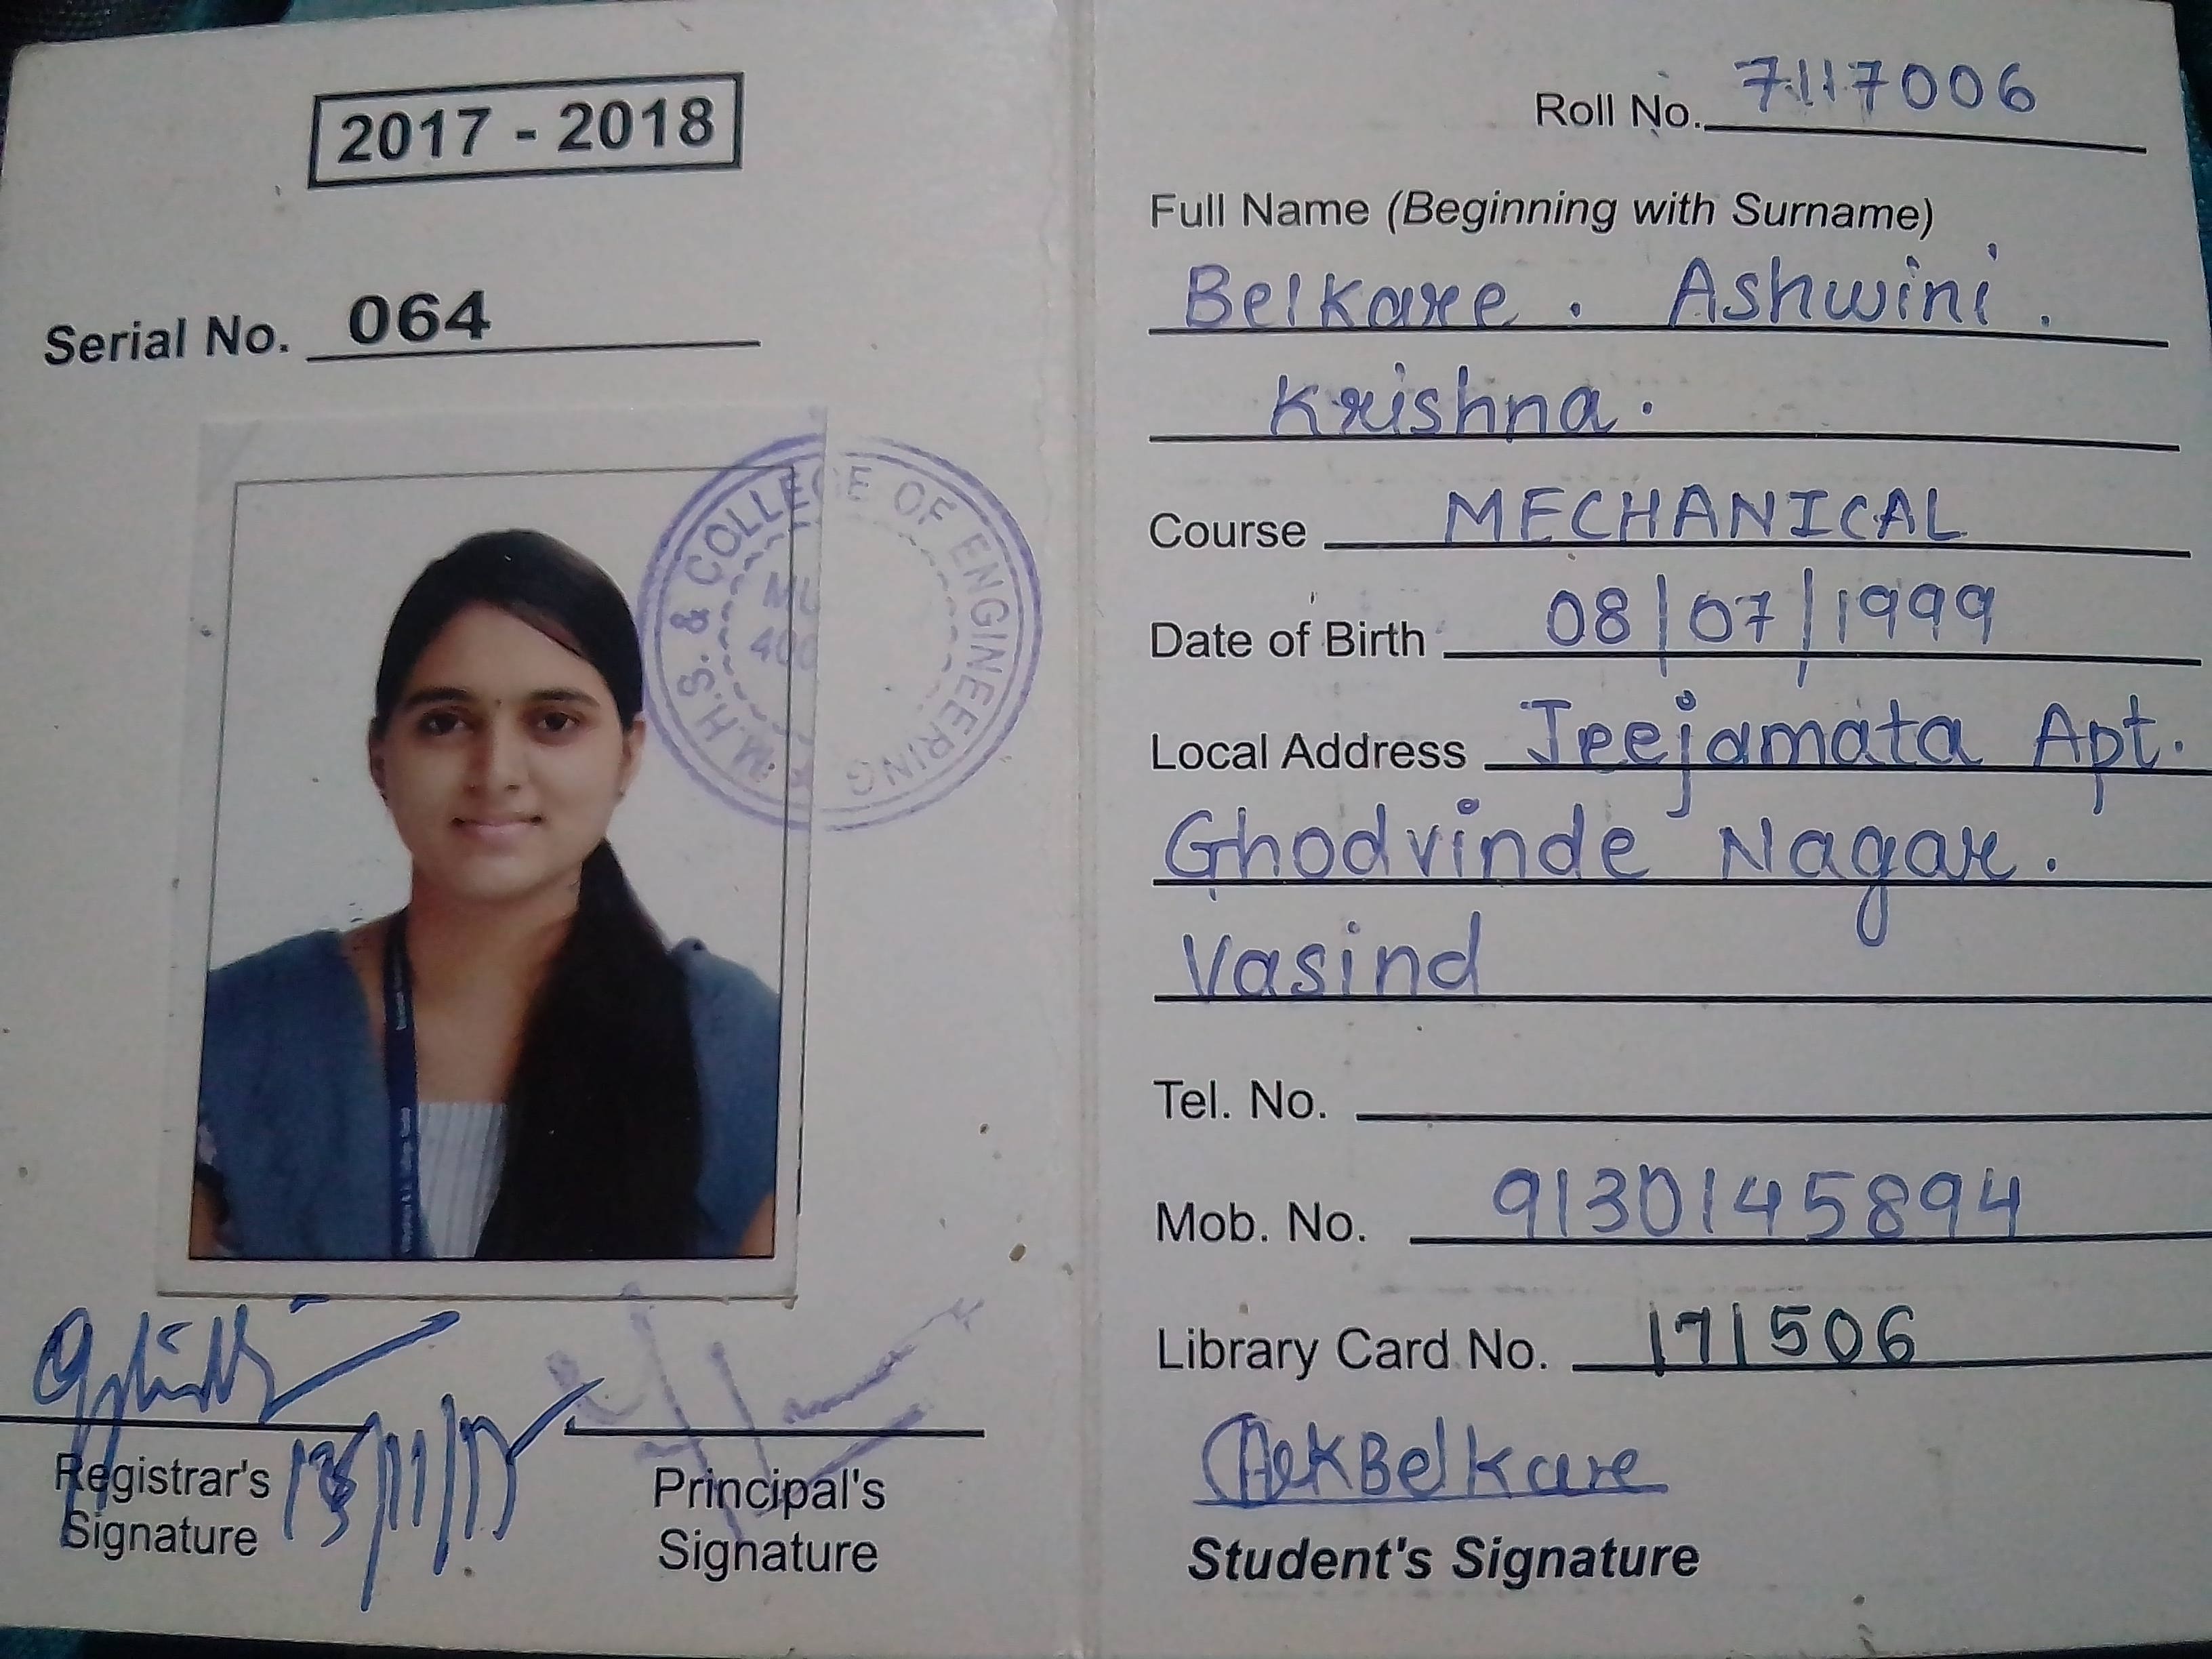 2017 - 2018
Serial No. 064
M.H.S.S. & COLLEGE OF ENGINEERING
Registrar's
Signature
13/11/17
Principal's
Signature
Roll No. 7117006
Full Name (Beginning with Surname)
Belkare. Ashwini.
Krishna.
Course MECHANICAL
Date of Birth 08/07/1999
Local Address Jeejamata Apt.
Ghodvinde Nagar.
Vasind
Tel. No.
Mob. No. 9130145894
Library Card No. 171506
Belkare
Student's Signature